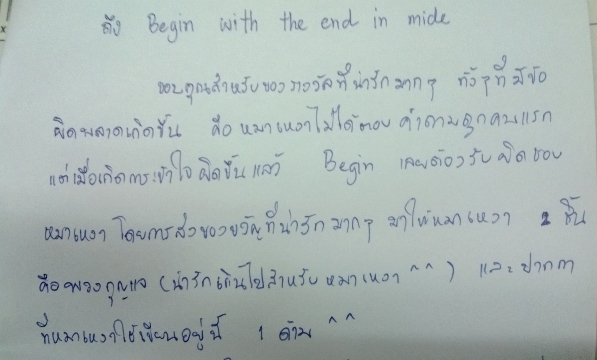 ถึง Begin with the end in mide
ขอบคุณสำหรับของรางวัลที่น่ารักมากๆ ทั้งๆที่มีข้อ
ผิดพลาดเกิดขึ้น คือ หมาเหงาไม่ได้ตอบคำถามถูกคนแรก
แต่เมื่อเกิดการเข้าใจผิดขึ้นแล้ว Begin เลยต้องรับผิดชอบ
หมาเหงา โดยการส่งของขวัญที่น่ารักมากๆ มาให้หมาเหงา 2 ชิ้น
คือพวงกุญแจ (น่ารักเกินไปสำหรับหมาเหงา ^^) และปากกา
ที่หมาเหงาใช้เขียนอยู่นี้ 1 ด้าม ^^